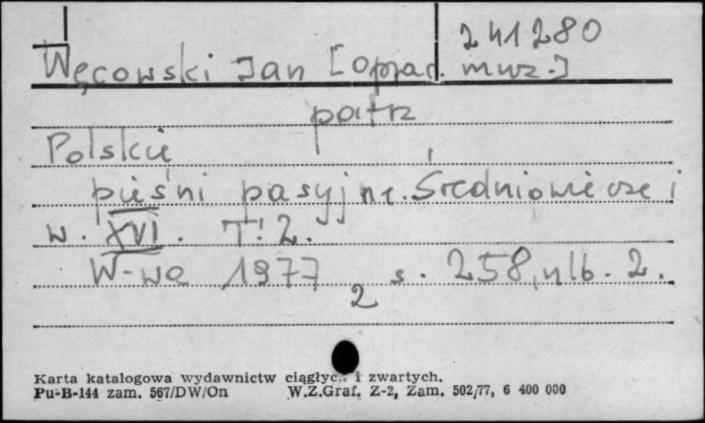 241280
Węcowski Jan [oprac. muz.]
patrz
Polskie
pieśni pasyjne. Średniowiecze i
w. XVI. T. 2.
W-wa 1977 s. 258, nlb. 2.
2
Karta katalogowa wydawnictw ciągłych i zwartych.
Pu-B-144 zam. 567/DW/On W.Z.Graf. Z-2, Zam. 502/77, 6 400 000